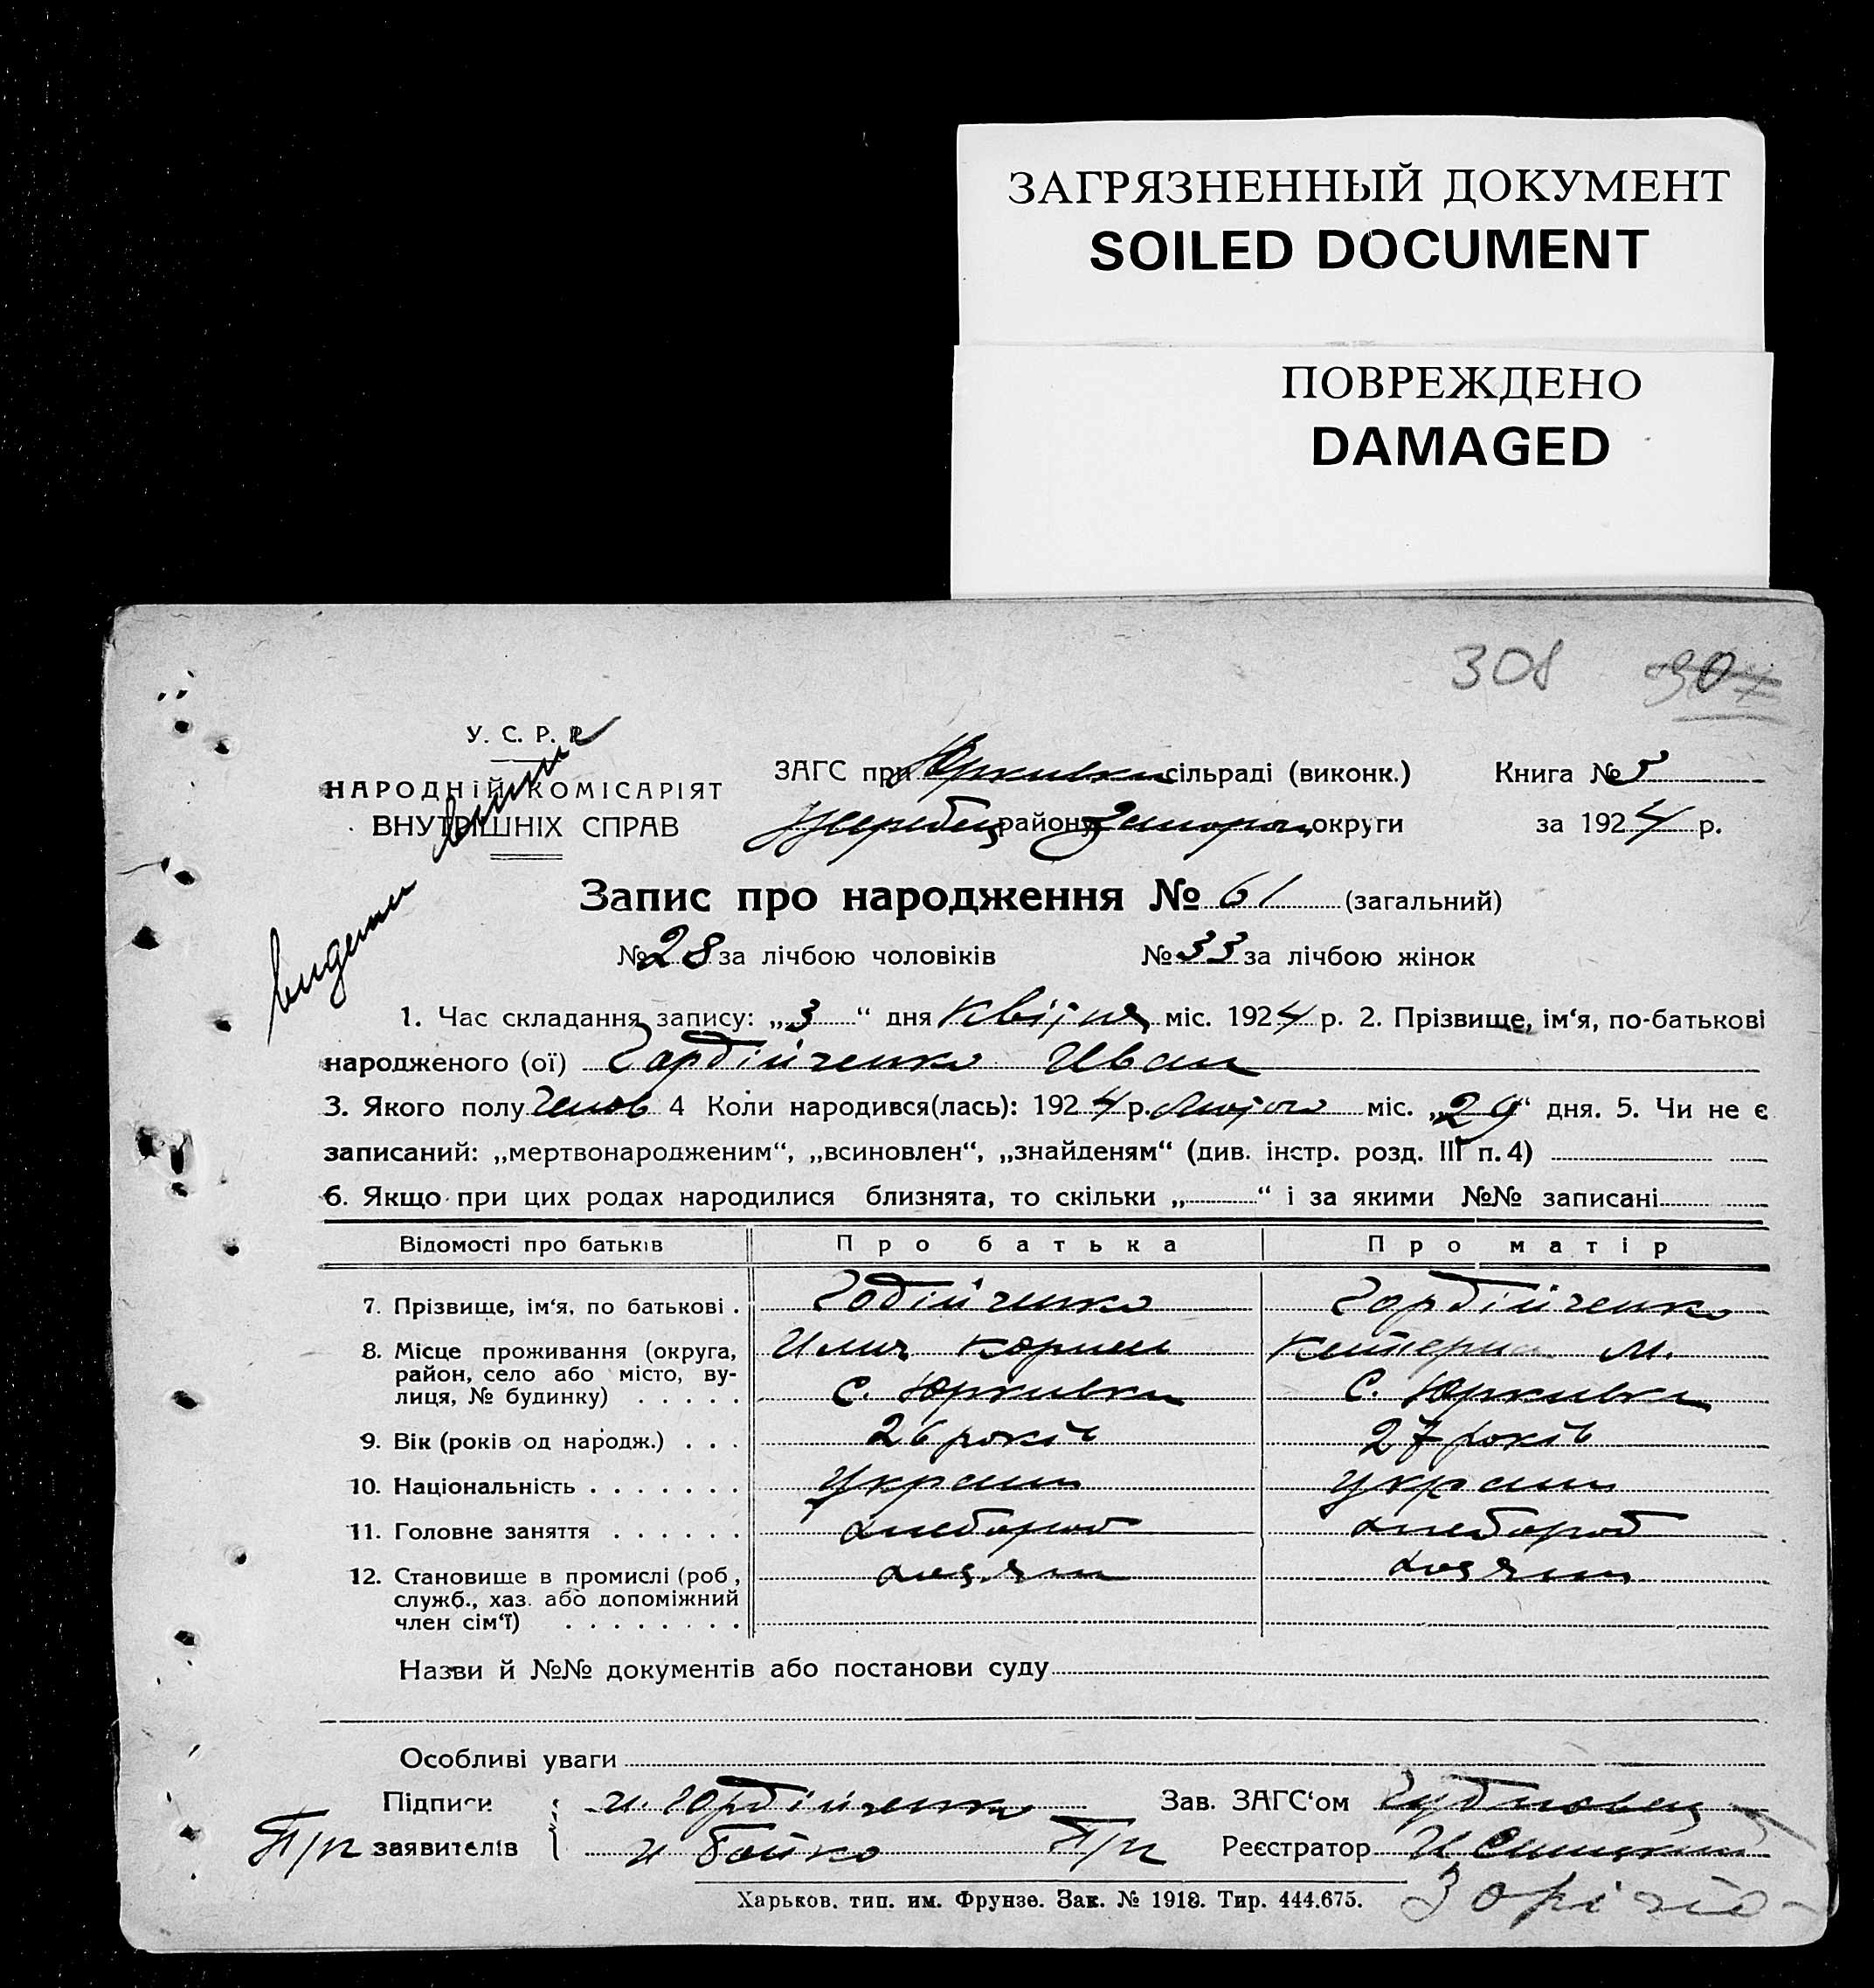 ЗАГРЯЗНЕННЫЙ ДОКУМЕНТ
SOILED DOCUMENT
ПОВРЕЖДЕНО
DAMAGED
308 307
У. С. Р. Р.
НАРОДНІЙ КОМІСАРІЯТ
ВНУТРІШНІХ СПРАВ
ЗАГС при Юрківка сільраді (виконк.) Книга № 5
району округи за 1924 р.
Запис про народження № 61 (загальний)
№ 28 за лічбою чоловіків № 33 за лічбою жінок
1. Час складання запису: „3“ дня квітня міс. 1924 р. 2. Прізвище, ім‘я, по-батькові
народженого (ої) Гордійченко Иван
3. Якого полу Чолов 4 Коли народився(лась): 1924 р. Лютого міс. „29“ дня. 5. Чи не є
записаний: „мертвонародженим“, „всиновлен“, „знайденям“ (див. інстр. розд. III п. 4)
6. Якщо при цих родах народилися близнята, то скільки „ “ і за якими №№ записані
Відомості про батьків Про батька Про матір
7. Прізвище, ім‘я, по батькові . Годійченко Гордійченко
8. Місце проживання (округа, Илич М.
район, село або місто, ву-
лиця, № будинку) . . . . . с. Юркивка с. Юркивка
9. Вік (років од народж.) . . . 26 років 27 років
10. Національність . . . . . . . Украин Украин
11. Головне заняття . . . . . . хлебороб хлебороб
12. Становище в промислі (роб., хозяин хозяин
служб., хаз. або допоміжний
член сім‘ї) . . . . . . . .
Назви й №№ документів або постанови суду
Особливі уваги
Підписи и. Гордійченко Зав. ЗАГС‘ом
П/п заявителів и Бойко П/п Реєстратор И
Харьков. тип. им. Фрунзе. Зак. № 1918. Тир. 444.675.